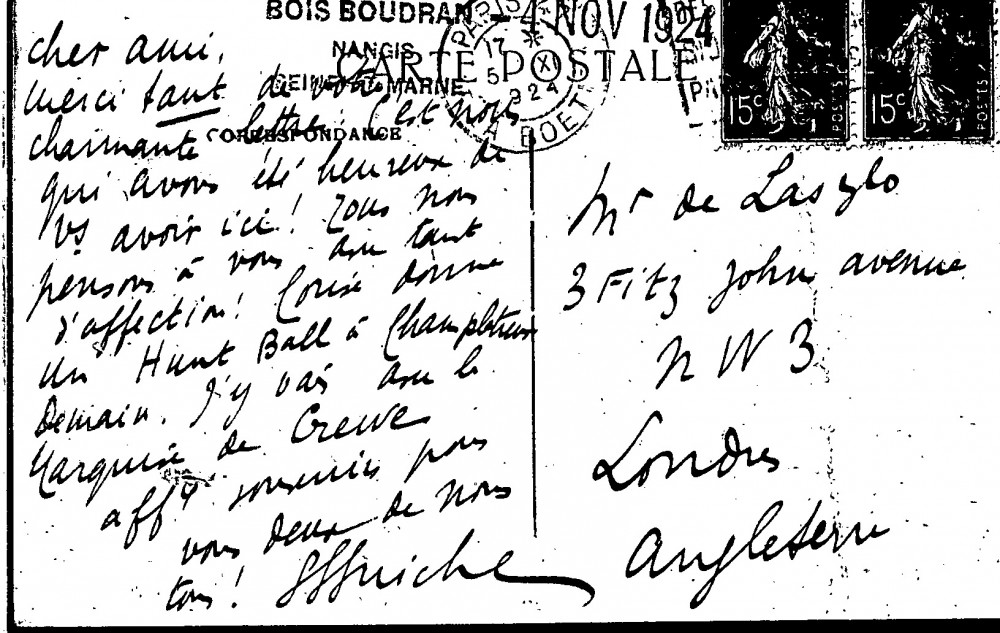 BOIS BOUDRAN - 4 NOV 1924
NANGIS
SEINE ET MARNE
CARTE POSTALE
CORRESPONDANCE
PARIS
17 *
5 XI
924
LA BOETIE
15c POSTES
15c POSTES
cher ami,
merci tant de votre
charmante lettre. C'est nous
qui avons été heureux de
vs avoir ici ! Tous nous
pensons à vous avec tant
d'affection ! Louise donne
un Hunt Ball à Champlatreux
Demain. J'y vais avec la
Marquise de Crewe
afft souvenirs pour
vous deux de nous
tous ! HGreffulhe
Mr de Laszlo
3 Fitz John avenue
N W 3
Londres
Angleterre